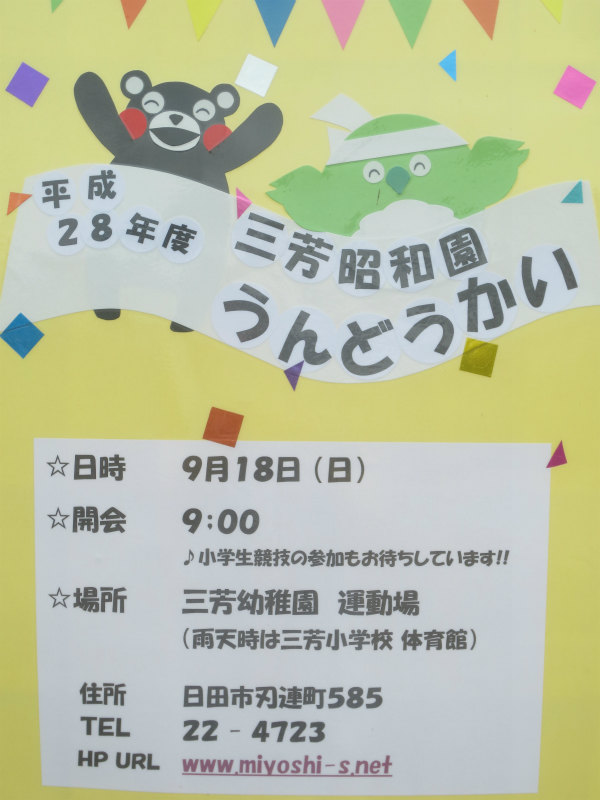 平成
28年度
三芳昭和園
うんどうかい
☆日時 9月18日（日）
☆開会 9:00
♪小学生競技の参加もお待ちしています!!
☆場所 三芳幼稚園 運動場
（雨天時は三芳小学校 体育館）
住所 日田市刃連町585
TEL 22 - 4723
HP URL www.miyoshi-s.net